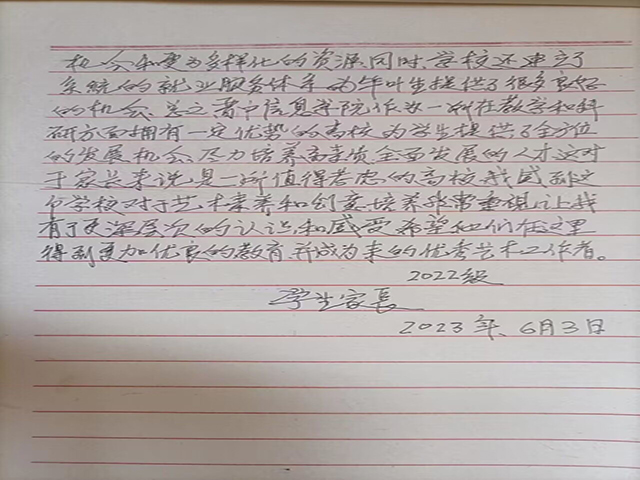 机会和更为多样化的资源同时学校还建立了
系统的就业服务体系为毕业生提供了很多良好
的机会总之晋中信息学院作为一所在教学和科
研方面拥有一定优势的高校为学生提供了全方位
的发展机会尽力培养高素质全面发展的人才这对
于家长来说是一所值得考虑的高校我感到这
个学校对于艺术素养和创意培养非常重视让我
有了更深层次的认识和感受希望他们在这里
得到更加优良的教育并成为未来的优秀艺术工作者。
2022级
学生家長
2023年、6月3日